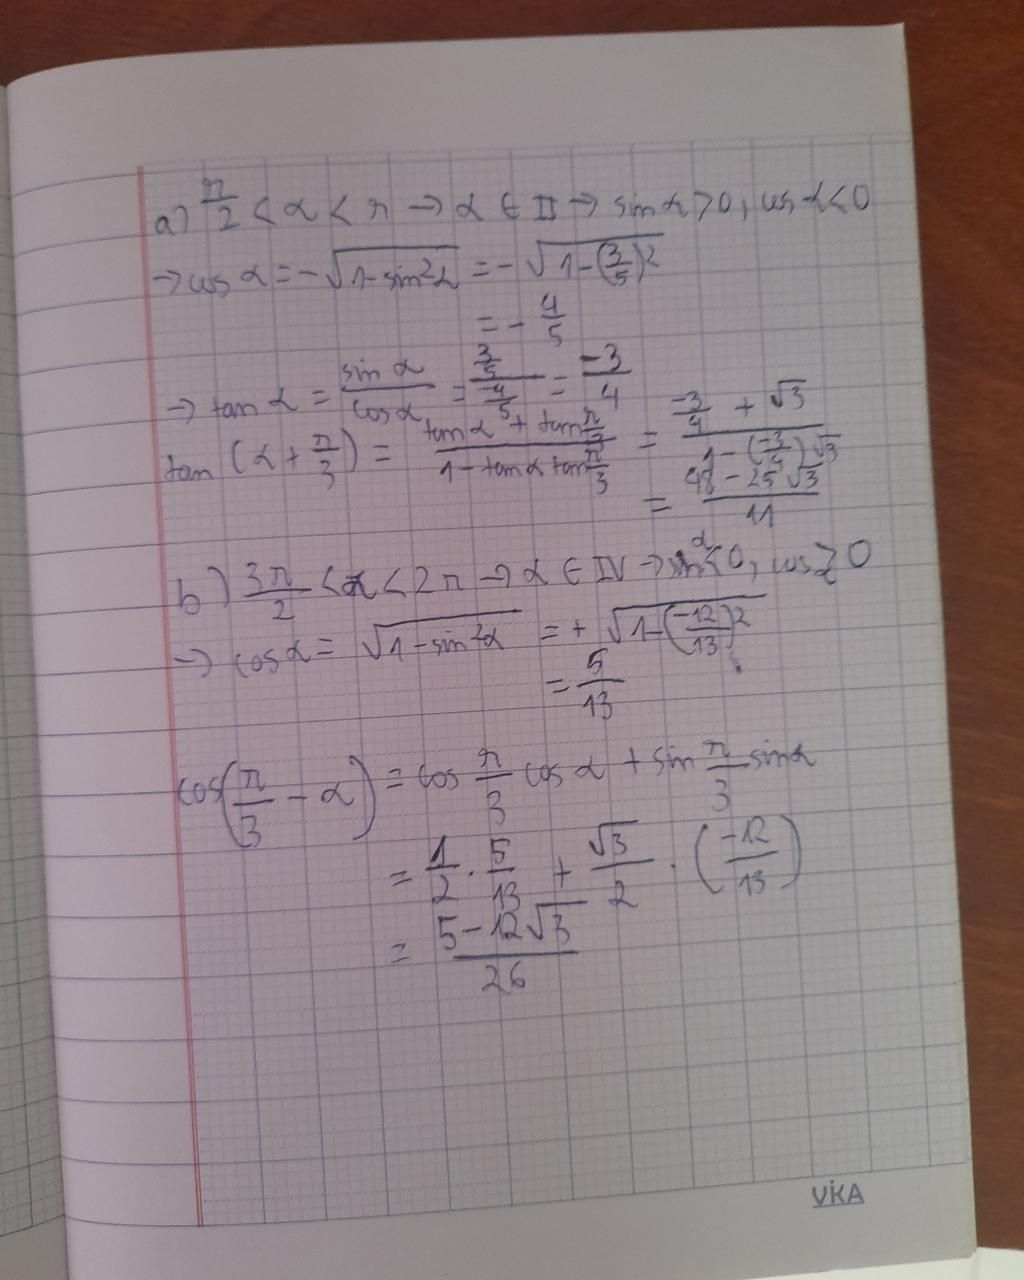 a) π/2 < α < π → α ∈ II → sin α > 0, cos α < 0
→ cos α = -√(1-sin²α) = -√(1-(3/5)²)
= -4/5
→ tan α = sin α/cos α = (3/5)/(-4/5) = -3/4
tan (α + π/3) = (tan α + tan π/3)/(1 - tan α tan π/3) = (-3/4 + √3)/(1 - (-3/4)√3)
= (48 - 25√3)/11
b) 3π/2 < α < 2π → α ∈ IV → sin α < 0, cos ≥ 0
→ cos α = √(1-sin²α) = +√(1-(-12/13)²)
= 5/13
cos(π/3 - α) = cos π/3 cos α + sin π/3 sin α
= 1/2 · 5/13 + √3/2 · (-12/13)
= (5 - 12√3)/26
VIKA